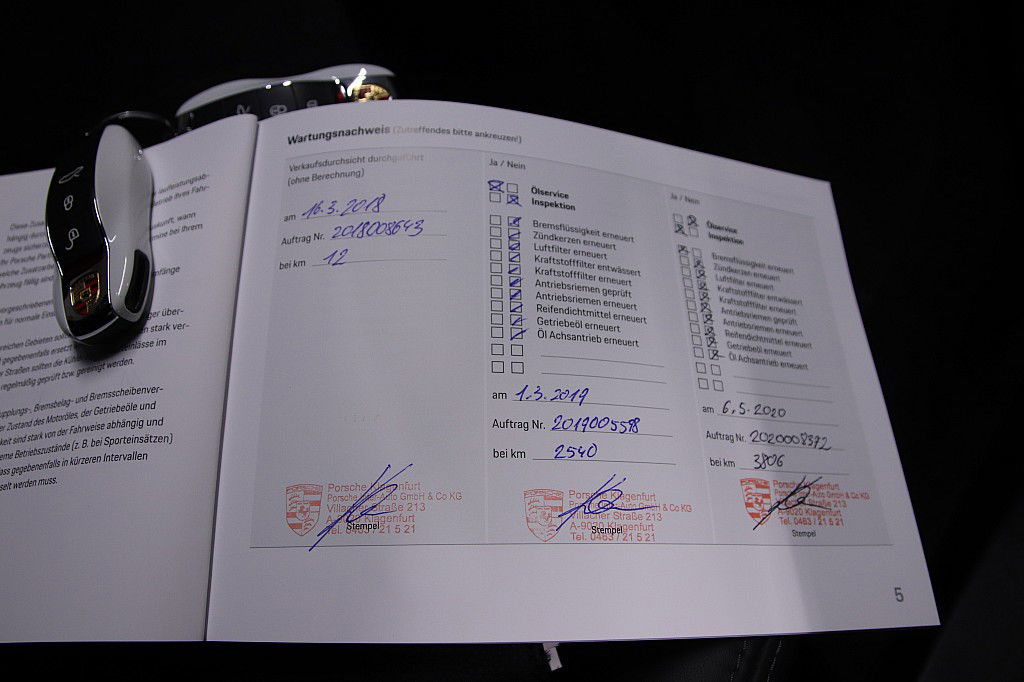 laufleistungsab-
Diese Zusa
betrieb Ihres Fahr-
hängig durch
zeugs sicherz
kunft, wann
Ihr Porsche Par
mine bei Ihrem
welche Zusatzarbe
Fahrzeug fällig sind
mfänge
vorgeschriebenen
n für normale Eins
ger über-
reichen Gebieten soll
stark ver-
gegebenenfalls ersetz
nlässe im
r Straßen sollten die Kühl
regelmäßig geprüft bzw. gereinigt werden.
upplungs-, Bremsbelag- und Bremsscheibenver-
er Zustand des Motoröles, der Getriebeöle und
keit sind stark von der Fahrweise abhängig und
eme Betriebszustände (z. B. bei Sporteinsätzen)
ass gegebenenfalls in kürzeren Intervallen
selt werden muss.
Wartungsnachweis (Zutreffendes bitte ankreuzen!)
Verkaufsdurchsicht durchgeführt
(ohne Berechnung)
am 16.3.2018
Auftrag Nr. 2018008643
bei km 12
Porsche Klagenfurt
Porsche Inter-Auto GmbH & Co KG
Villacher Straße 213
A-9020 Klagenfurt
Tel. 0463 / 21 5 21
Stempel
Ja / Nein
Ölservice
Inspektion
Bremsflüssigkeit erneuert
Zündkerzen erneuert
Luftfilter erneuert
Kraftstofffilter entwässert
Kraftstofffilter erneuert
Antriebsriemen geprüft
Antriebsriemen erneuert
Reifendichtmittel erneuert
Getriebeöl erneuert
Öl Achsantrieb erneuert
am 1.3.2019
Auftrag Nr. 2019005598
bei km 2540
Porsche Klagenfurt
Porsche Inter-Auto GmbH & Co KG
Villacher Straße 213
A-9020 Klagenfurt
Tel. 0463 / 21 5 21
Stempel
Ja / Nein
Ölservice
Inspektion
Bremsflüssigkeit erneuert
Zündkerzen erneuert
Luftfilter erneuert
Kraftstofffilter entwässert
Kraftstofffilter erneuert
Antriebsriemen geprüft
Antriebsriemen erneuert
Reifendichtmittel erneuert
Getriebeöl erneuert
Öl Achsantrieb erneuert
am 6.5.2020
Auftrag Nr. 2020008392
bei km 3806
Porsche Klagenfurt
Porsche Inter-Auto GmbH & Co KG
Villacher Straße 213
A-9020 Klagenfurt
Tel. 0463 / 21 5 21
Stempel
5